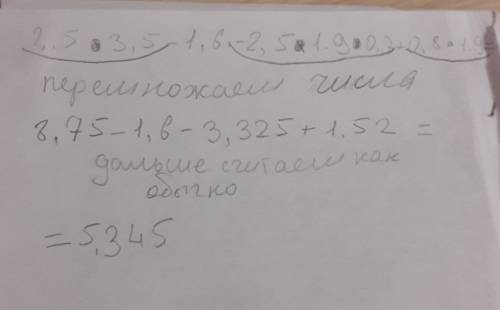 2,5•3,5-1,6-2,5•1.9•0,7+0,8•1.9=
перемножаем числа
8,75-1,6-3,325+1,52=
дальше считаем как
обычно
=5,345